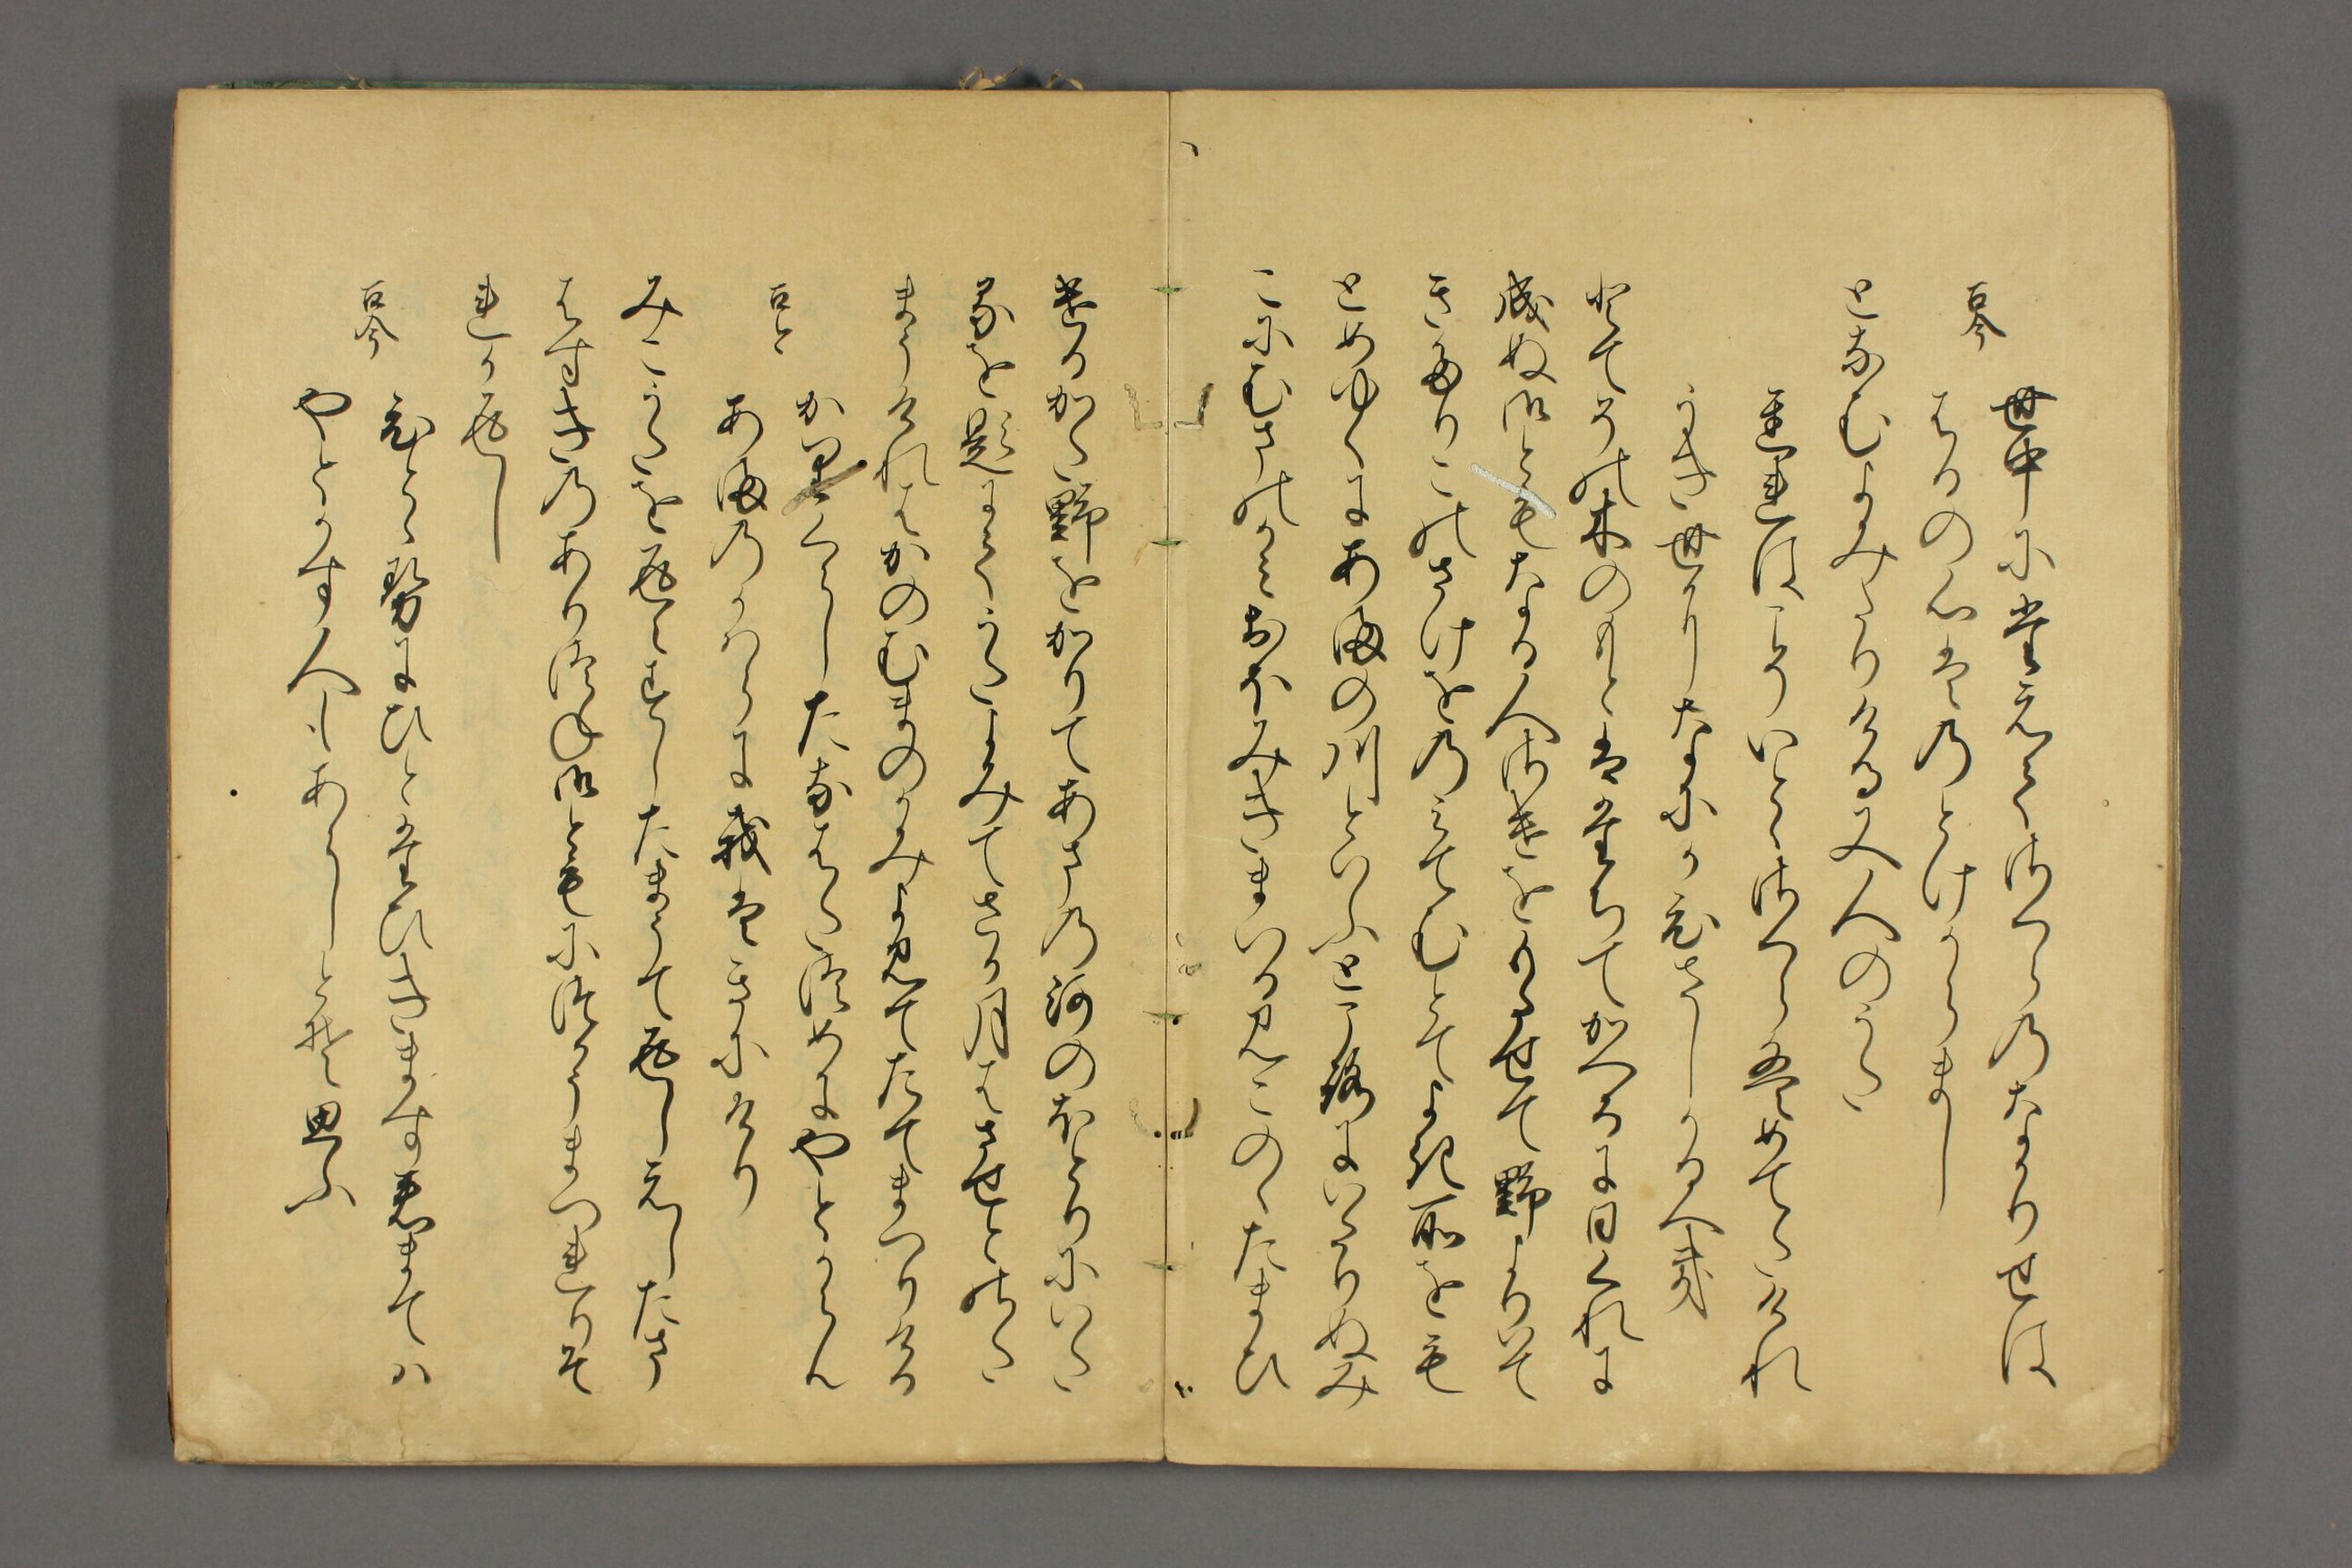 古今
世中にたえてさくらのなかりせは
はるの心はのとけからまし
となむよみたりける又人のうた
ちれはこそいとゝさくらはめてたけれ
うき世になにかひさしかるへき
とてその木のもとはたちてかへるに日くれに
成ぬ御ともなる人さけをもたせて野よりいて
きたりこのさけをのみてむとてよき所をも
とめゆくにあまの川といふところにいたりぬみ
こにむまのかみおほみきまいるみこのゝたまひ
けるかた野をかりてあまの河のほとりにいた
るを題にてうたよみてさか月はさせとのた
まうけれはかのむまのかみよみてたてまつりける
古今
かりくらしたなはたつめにやとからん
あまのかはらに我はきにけり
みこうたを返々すしたまうて返しえしたま
はすきのありつね御ともにつかうまつれりそ
れか返し
古今
ひとゝせにひとたひきます君まては
やとかす人もあらしとそ思ふ